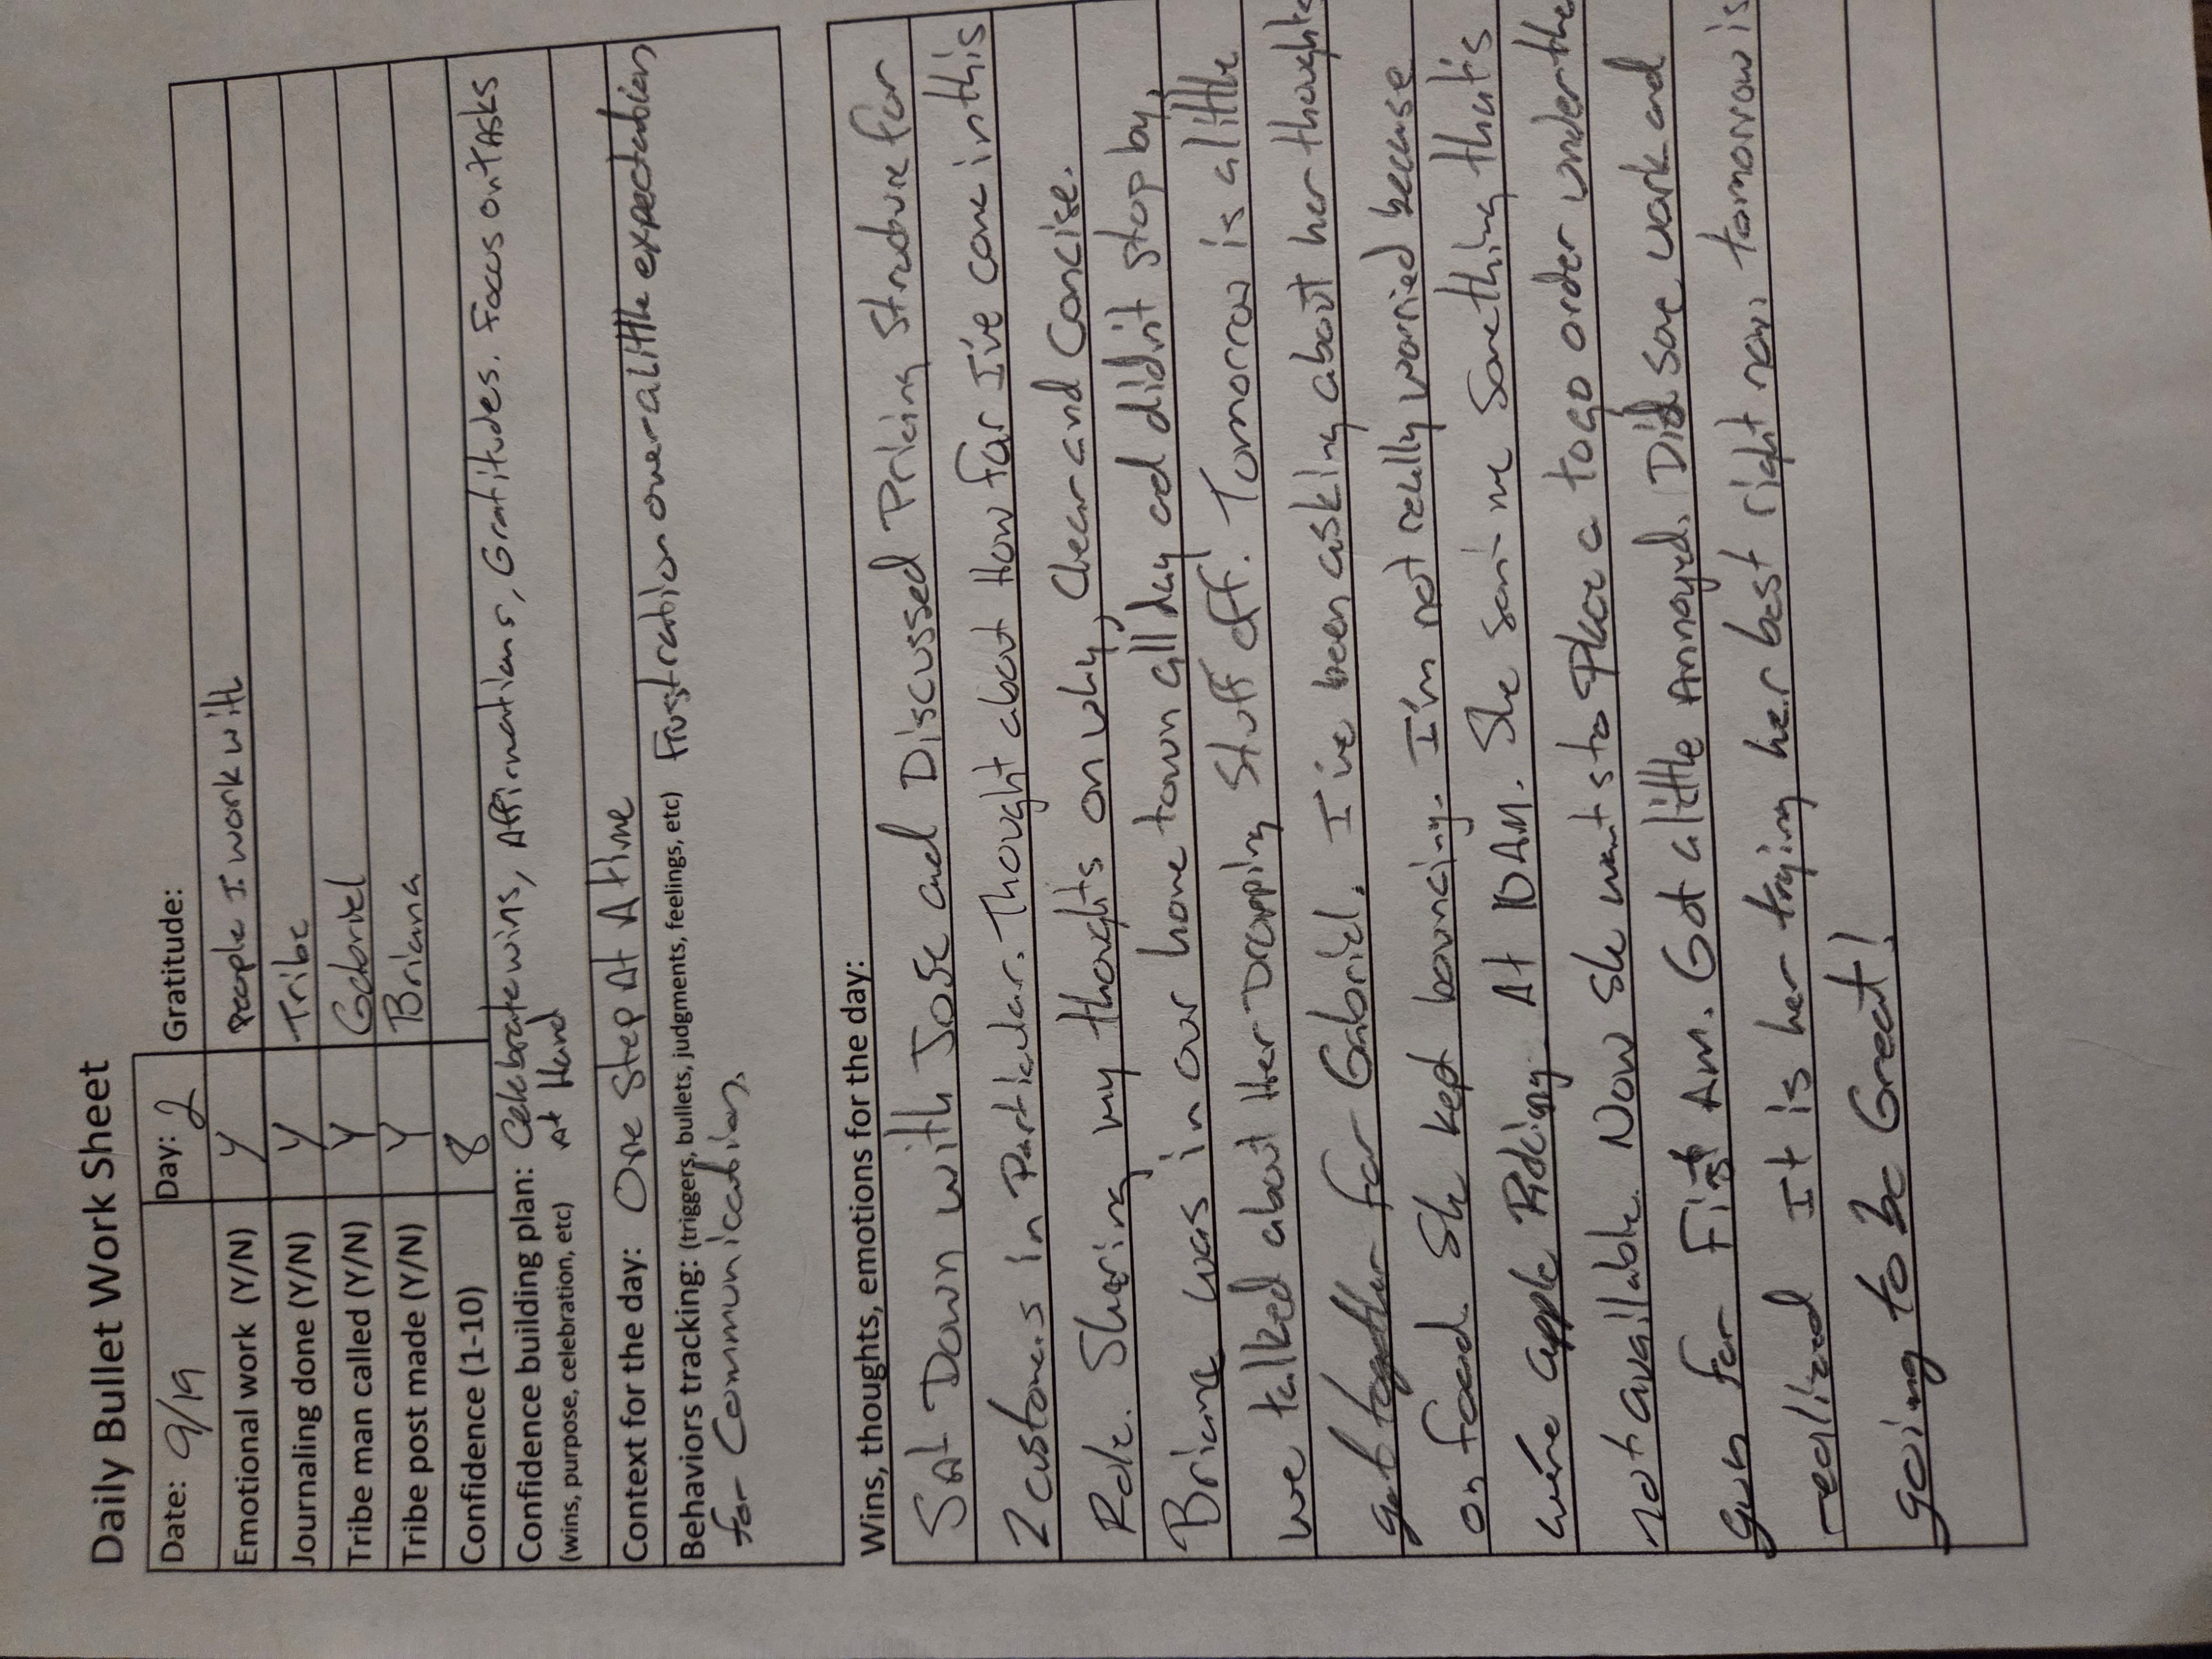 Daily Bullet Work Sheet
Date: 9/19 Day: 2 Gratitude:
Emotional work (Y/N) Y People I work with
Journaling done (Y/N) Y Tribe
Tribe man called (Y/N) Y Gabriel
Tribe post made (Y/N) Y Briana
Confidence (1-10) 8
Confidence building plan: Celebrate wins, Affirmations, Gratitudes. Focus on TASKS
(wins, purpose, celebration, etc) At Hand
Context for the day: One Step At A time
Behaviors tracking: (triggers, bullets, judgments, feelings, etc) Frustration over a little expectation
for Communication.
Wins, thoughts, emotions for the day:
Sat Down with Jose and Discussed Pricing Structure for
2 customers in Particular. Thought about How far I've come in this
Role. Sharing my thoughts on why, Clear and Concise.
Briana was in our home town all day and didn't stop by,
we talked about Her Dropping Stuff off. Tomorrow is a little
get together for Gabriel. I've been asking about her thoughts
on food. She kept bouncing. I'm not really worried because
we're apple Picking. At 10 AM. She sent me something that's
not available. Now She wants to Place a to go order under the
gun for First Am. Got a little Annoyed. Did some work and
realized It is her trying her best right now. tomorrow is
going to be Great!